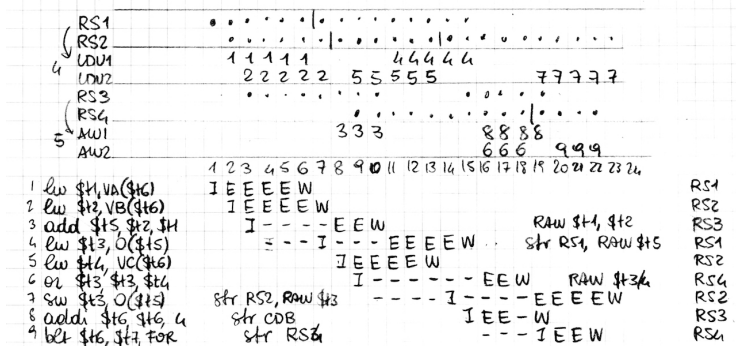 RS1
RS2
4 LDU1 1 1 1 1 1 4 4 4 4 4
LDU2 2 2 2 2 2 5 5 5 5 5 7 7 7 7 7
RS3
RS4
5 ALU1 3 3 3 8 8 8 8
ALU2 6 6 6 9 9 9
1 2 3 4 5 6 7 8 9 10 11 12 13 14 15 16 17 18 19 20 21 22 23 24
1 lw $t1, VA($t6) I E E E E E W RS1
2 lw $t2, VB($t6) I E E E E E W RS2
3 add $t5, $t2, $t1 I - - - - E E W RAW $t1, $t2 RS3
4 lw $t3, 0($t5) - - - I - - - E E E E E W str RS1, RAW $t5 RS1
5 lw $t4, VC($t6) I E E E E E W RS2
6 or $t3, $t3, $t4 I - - - - - - E E W RAW $t3/4 RS4
7 sw $t3, 0($t5) str RS2, RAW $t3 - - - - I - - - - - E E E E E W RS2
8 addi $t6, $t6, 4 str CDB I E E - W RS3
9 blt $t6, $t7, FOR str RS4 - - - I E E W RS4